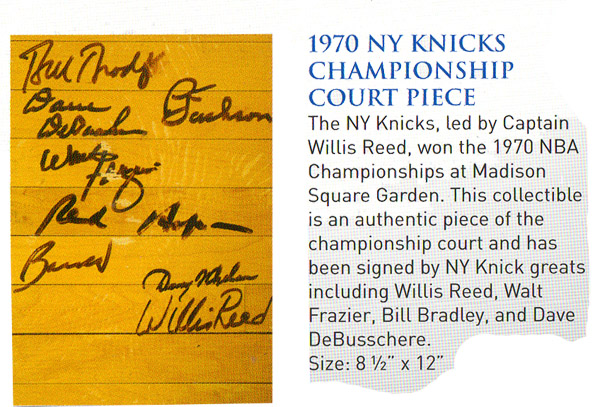 Dave
DeBusschere
Jackson
Walt Frazier
Red Holzman
Barnett
Willis Reed
1970 NY KNICKS
CHAMPIONSHIP
COURT PIECE
The NY Knicks, led by Captain
Willis Reed, won the 1970 NBA
Championships at Madison
Square Garden. This collectible
is an authentic piece of the
championship court and has
been signed by NY Knick greats
including Willis Reed, Walt
Frazier, Bill Bradley, and Dave
DeBusschere.
Size: 8 ½” x 12”